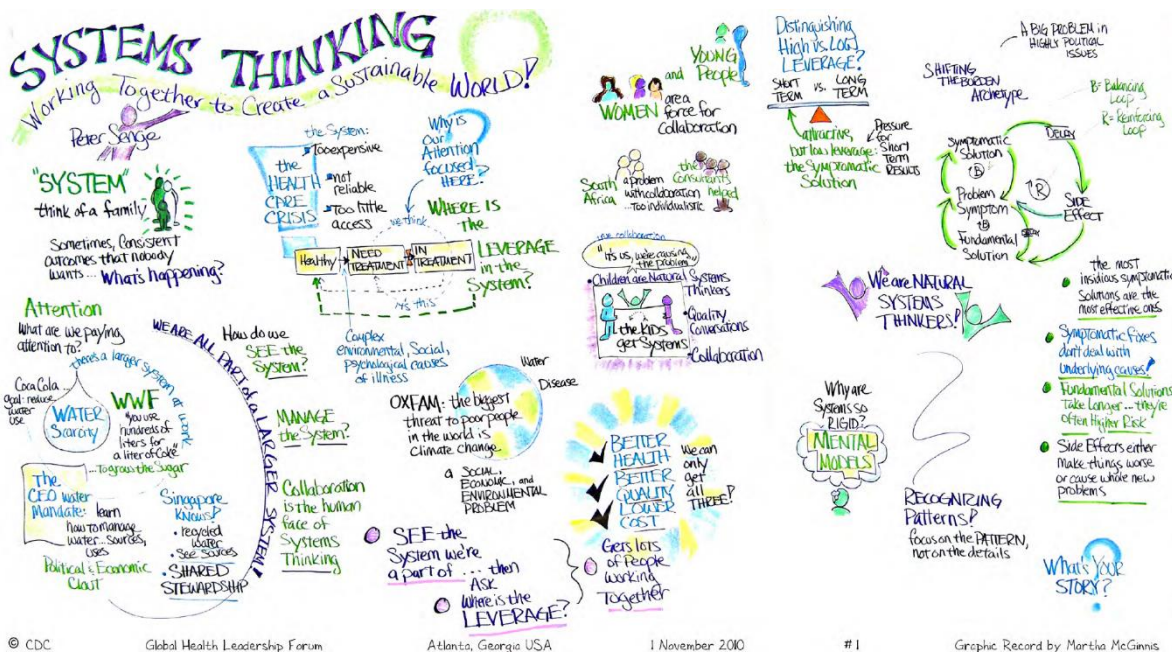 SYSTEMS THINKING
Working Together to Create a Sustainable WORLD!
Peter Senge
"SYSTEM"
think of a family
Sometimes, Consistent
outcomes that nobody
wants... What's happening?
Attention
What are we paying
attention to?
there's a larger system at work
Coca Cola...
goal: reduce
water
use
WATER
Scarcity
WWF
"you use
hundreds of
liters for
a liter of Coke"
...to grow the Sugar
The
CEO Water
Mandate: learn
how to manage
water... sources,
uses
Political & Economic
Clout
Singapore
KNOWS!
• recycled
water
• See Sources
• SHARED
STEWARDSHIP
WE ARE ALL PART of a LARGER SYSTEM!
the HEALTH
CARE
CRISIS
the System:
Too expensive
not
reliable
Too little
access
Why is
our
Attention
focused
HERE?
we think
WHERE IS
the
LEVERAGE
in the
System?
Healthy
NEED
TREATMENT
IN
TREATMENT
vs. this
Complex
environmental, Social,
psychological causes
of illness
How do we
SEE the
System?
MANAGE
the System?
Collaboration
is the human
face of
Systems
Thinking
Water
Disease
OXFAM: the biggest
threat to poor people
in the world is
climate change
a SOCIAL,
ECONOMIC, and
ENVIRONMENTAL
PROBLEM
SEE the
System we're
a part of ... then
ASK
Where is the
LEVERAGE?
YOUNG
and People
WOMEN are a
force for
Collaboration
South
Africa
a problem
with collaboration
...too individualistic
the
Consultants
helped
"It's us, we're causing
the problem"
Children are Natural Systems
Thinkers
the kids
get Systems
• Quality
Conversations
• Collaboration
BETTER
HEALTH
BETTER
QUALITY
LOWER
COST
We can
only
get
all
THREE!
Gets lots
of People
working
Together
Distinguishing
High vs. Low
LEVERAGE?
SHORT
TERM vs. LONG
TERM
attractive,
but low leverage:
the Symptomatic
Solution
Pressure
for
Short
Term
RESULTS
A BIG PROBLEM in
HIGHLY POLITICAL
ISSUES
SHIFTING
THE BURDEN
Archetype
B = Balancing
Loop
R = Reinforcing
Loop
Symptomatic
Solution
DELAY
B
Problem
Symptom
R
Side
Effect
B
Fundamental
Solution
We are NATURAL
SYSTEMS
THINKERS!
Why are
Systems so
RIGID?
MENTAL
MODELS
RECOGNIZING
Patterns!
focus on the PATTERN,
not on the details
the most
insidious symptomatic
Solutions are the
most effective ones
Symptomatic Fixes
don't deal with
underlying causes!
Fundamental Solutions
Take Longer... they're
often Higher Risk
Side Effects either
make things worse
or cause whole new
problems
What's YOUR
STORY?
© CDC Global Health Leadership Forum Atlanta, Georgia USA 1 November 2010 #1 Graphic Record by Martha McGinnis